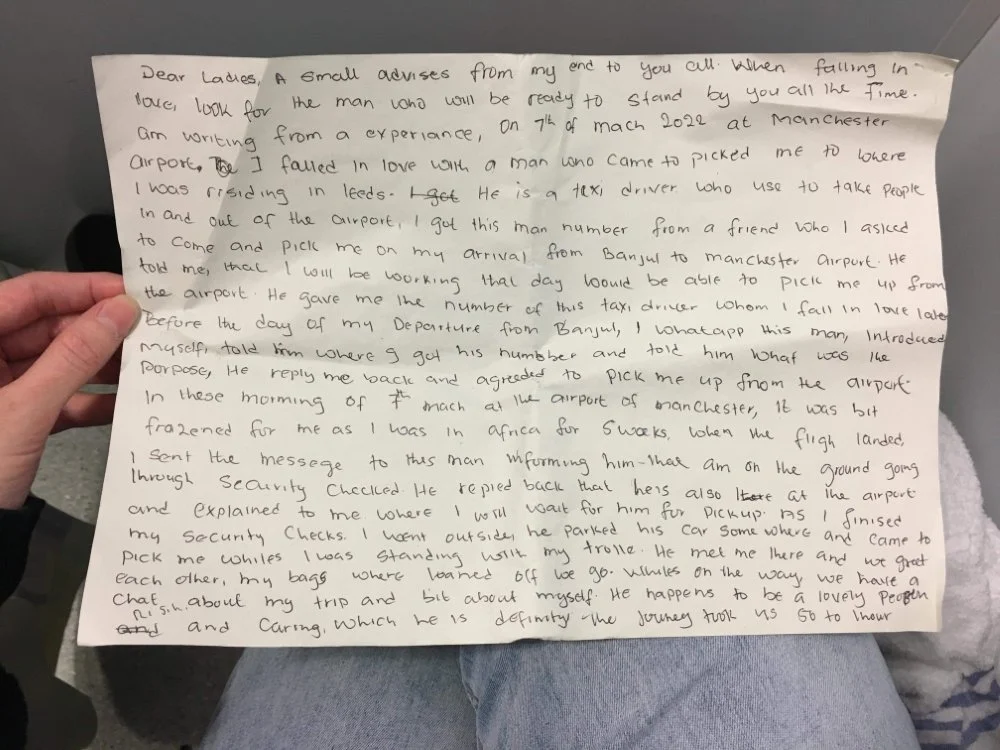 Dear Ladies, A small advises from my end to you all. When falling in
love, look for the man who will be ready to stand by you all the Time.
am writing from a experiance, on 7th of mach 2022 at Manchester
airport, I falled in love with a man who came to picked me to where
I was residing in leeds. He is a taxi driver who use to take people
in and out of the airport, I got this man number from a friend who I asked
to come and pick me on my arrival from Banjul to manchester airport. He
told me, that I will be working that day would be able to pick me up from
the airport. He gave me the number of this taxi driver whom I fall in love later
before the day of my Departure from Banjul, I whatapp this man, Introduced
myself, told him where I got his number and told him what was the
porpose, He reply me back and agreeded to pick me up from the airport.
In these morning of 7th mach at the airport of manchester, it was bit
frazened for me as I was in africa for 5 weeks, when the fligh landed,
I sent the messege to this man informing him that am on the ground going
through security checked. He repied back that he is also at the airport
and explained to me where I will wait for him for pickup. As I finised
my security checks. I went outside, he parked his car some where and came to
pick me whiles I was standing with my trolle. He met me there and we greet
each other, my bags where loaned off we go. Whiles on the way we have a
chat about my trip and bit about myself. He happens to be a lovely
and caring, which he is definity the journey took us 50 to 1hour